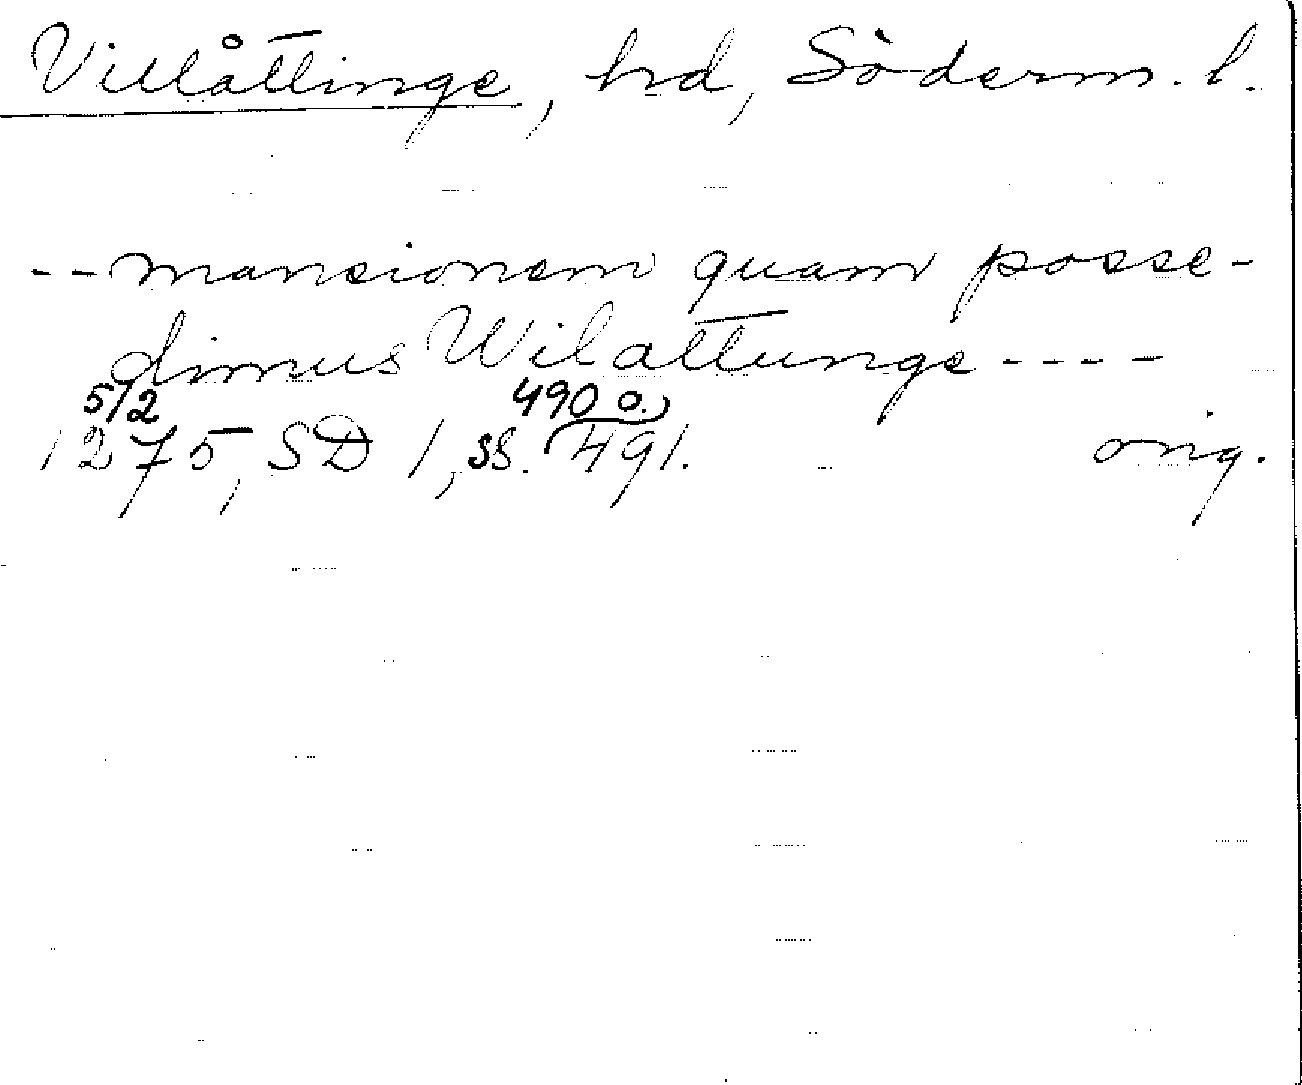 Villåttinge, hd, Söderm. l.
-- mansionem quam posse-
dimus Wilattunge ----
5/2 490 o.
1275, SD 1, ss. 491. orig.